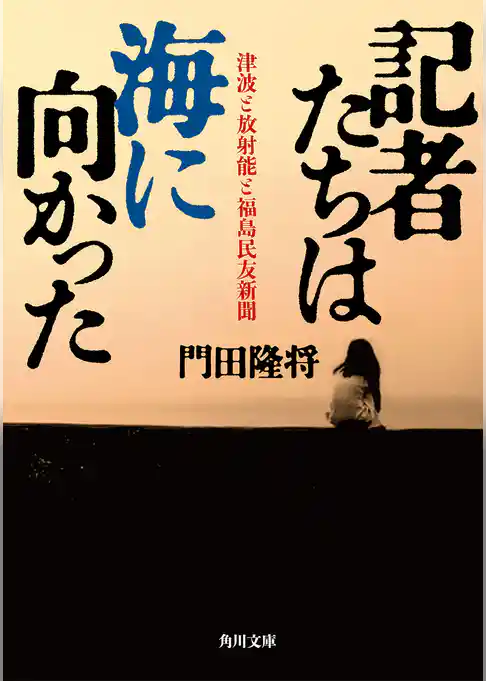 記者
たちは
海に
向かった
津波と放射能と福島民友新聞
門田隆将
角川文庫